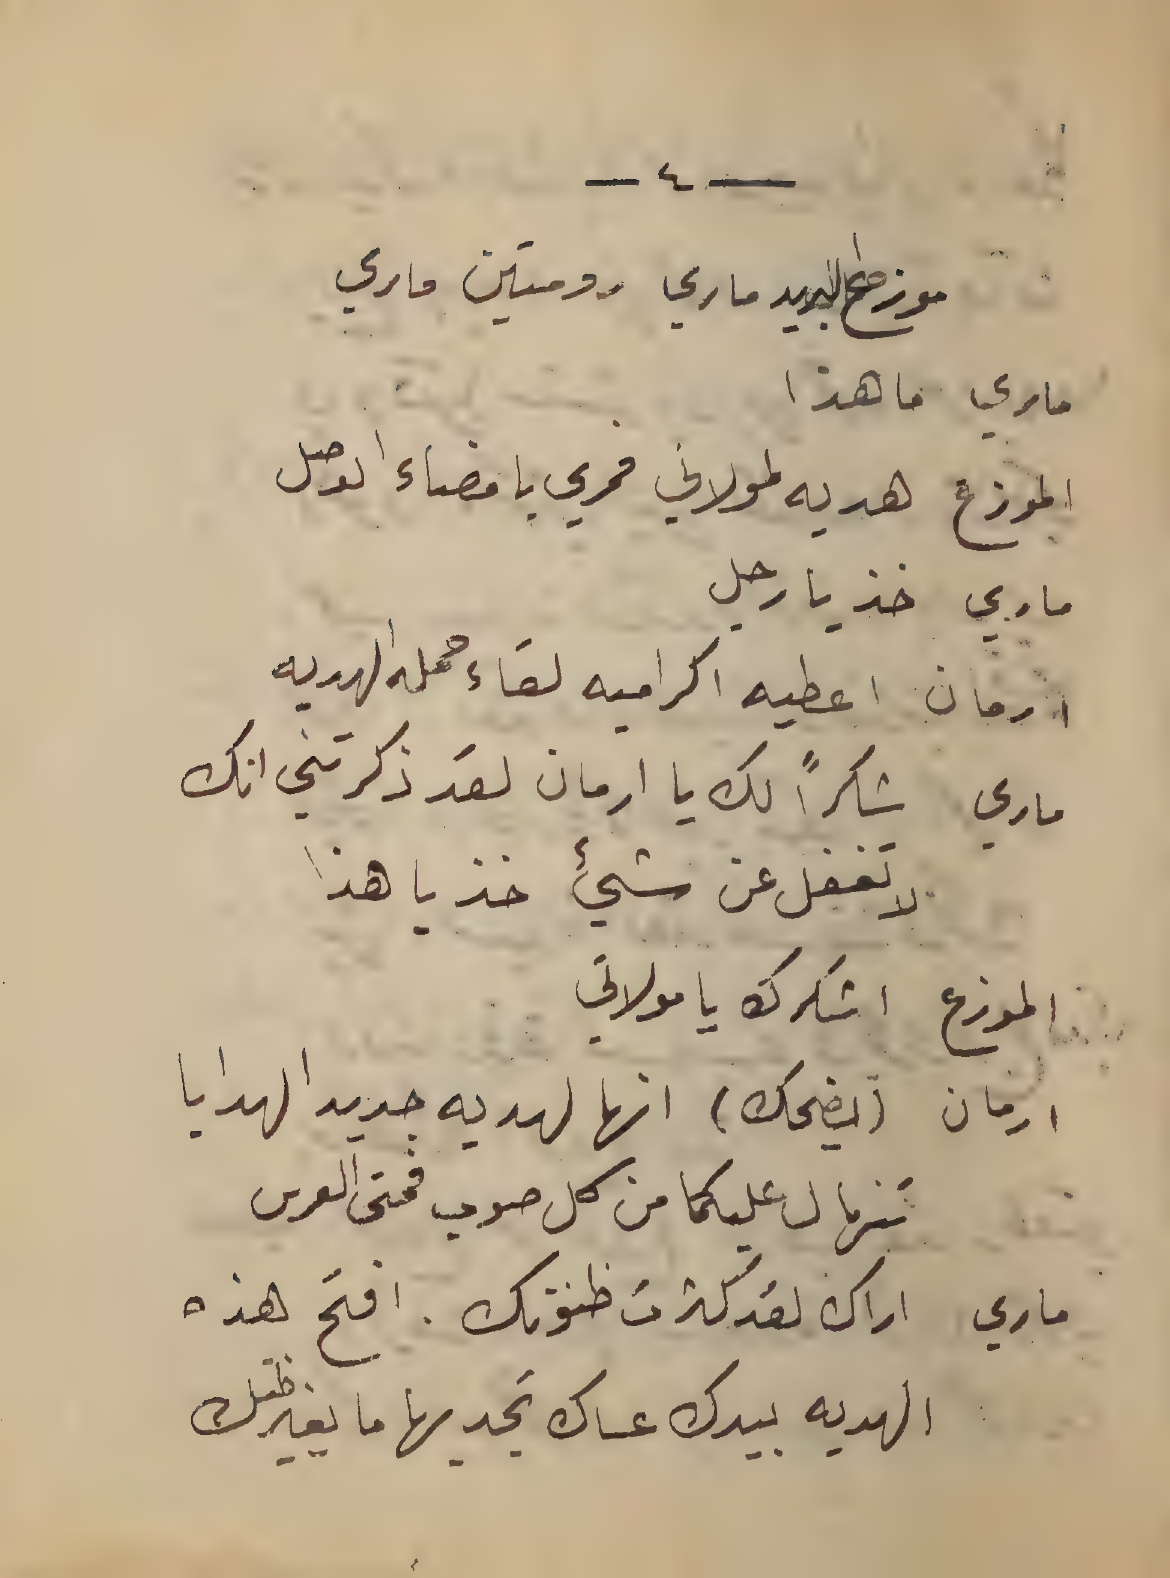 — ٤ —
موزع البريد ماري رومتين ماري
ماري ما هذا
الموزع هديه لمولاتي فمري بامضاء الوصل
ماري خذ يا رجل
ارمان اعطيه اكراميه لقاء حمله الهديه
ماري شكراً لك يا ارمان لقد ذكرتني انك
لا تغفل عن شيئ خذ يا هذا
الموزع اشكرك يا مولاتي
ارمان (يضحك) انها لهديه جديد الهدايا
تنهال عليكما من كل صوب فمتى العرس
ماري اراك لقد كثرت ظنونك . افتح هذه
الهديه بيدك عساك تجد بها ما يغير ظنك